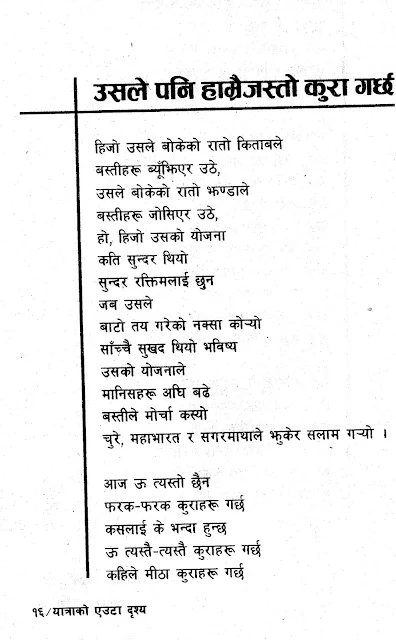 उसले पनि हाम्रैजस्तो कुरा गर्छ
हिजो उसले बोकेको रातो किताबले
बस्तीहरू ब्यूँझिएर उठे,
उसले बोकेको रातो झण्डाले
बस्तीहरू जोसिएर उठे,
हो, हिजो उसको योजना
कति सुन्दर थियो
सुन्दर रक्तिमलाई छुन
जब उसले
बाटो तय गरेको नक्सा कोऱ्यो
साँच्चै सुखद थियो भविष्य
उसको योजनाले
मानिसहरू अघि बढे
बस्तीले मोर्चा कस्यो
चुरे, महाभारत र सगरमाथाले झुकेर सलाम गऱ्यो ।
आज ऊ त्यस्तो छैन
फरक-फरक कुराहरू गर्छ
कसलाई के भन्दा हुन्छ
ऊ त्यस्तै-त्यस्तै कुराहरू गर्छ
कहिले मीठा कुराहरू गर्छ
१६/यात्राको एउटा दृश्य